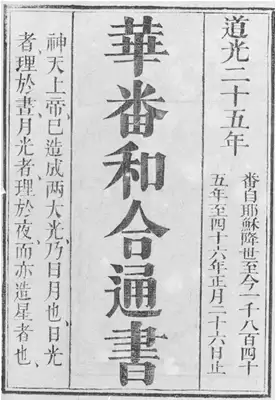 道光二十五年
番自耶穌降世至今一千八百四十
五年至四十六年正月二十六日止
華番和合通書
神天上帝已造成两大光乃日月也日光
者理於晝月光者理於夜而亦造星者也